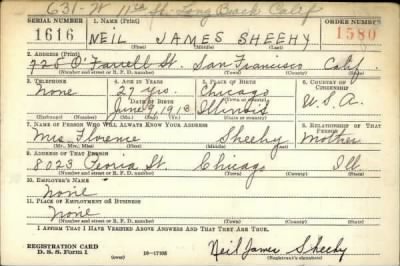 631-W 11th St - Long Beach Calif
SERIAL NUMBER 1. NAME (Print) ORDER NUMBER
1616 NEIL JAMES SHEEHY 1580
(First) (Middle) (Last)
2. ADDRESS (Print)
728 O'Farrell St. San Francisco Calif.
(Number and street or R. F. D. number) (Town) (County) (State)
3. TELEPHONE 4. AGE IN YEARS 5. PLACE OF BIRTH 6. COUNTRY OF CITIZENSHIP
None 27 yrs. Chicago
DATE OF BIRTH (Town or county)
June 9 1913 Illinois U.S.A.
(Exchange) (Number) (Mo.) (Day) (Yr.) (State or country)
7. NAME OF PERSON WHO WILL ALWAYS KNOW YOUR ADDRESS 8. RELATIONSHIP OF THAT PERSON
Mrs. Florence Sheehy Mother
(Mr., Mrs., Miss) (First) (Middle) (Last)
9. ADDRESS OF THAT PERSON
8023 Peoria St. Chicago Ill
(Number and street or R. F. D. number) (Town) (County) (State)
10. EMPLOYER'S NAME
None
11. PLACE OF EMPLOYMENT OR BUSINESS
None
(Number and street or R. F. D. number) (Town) (County) (State)
I AFFIRM THAT I HAVE VERIFIED ABOVE ANSWERS AND THAT THEY ARE TRUE.
REGISTRATION CARD
D. S. S. Form 1 16-17105
Neil James Sheehy